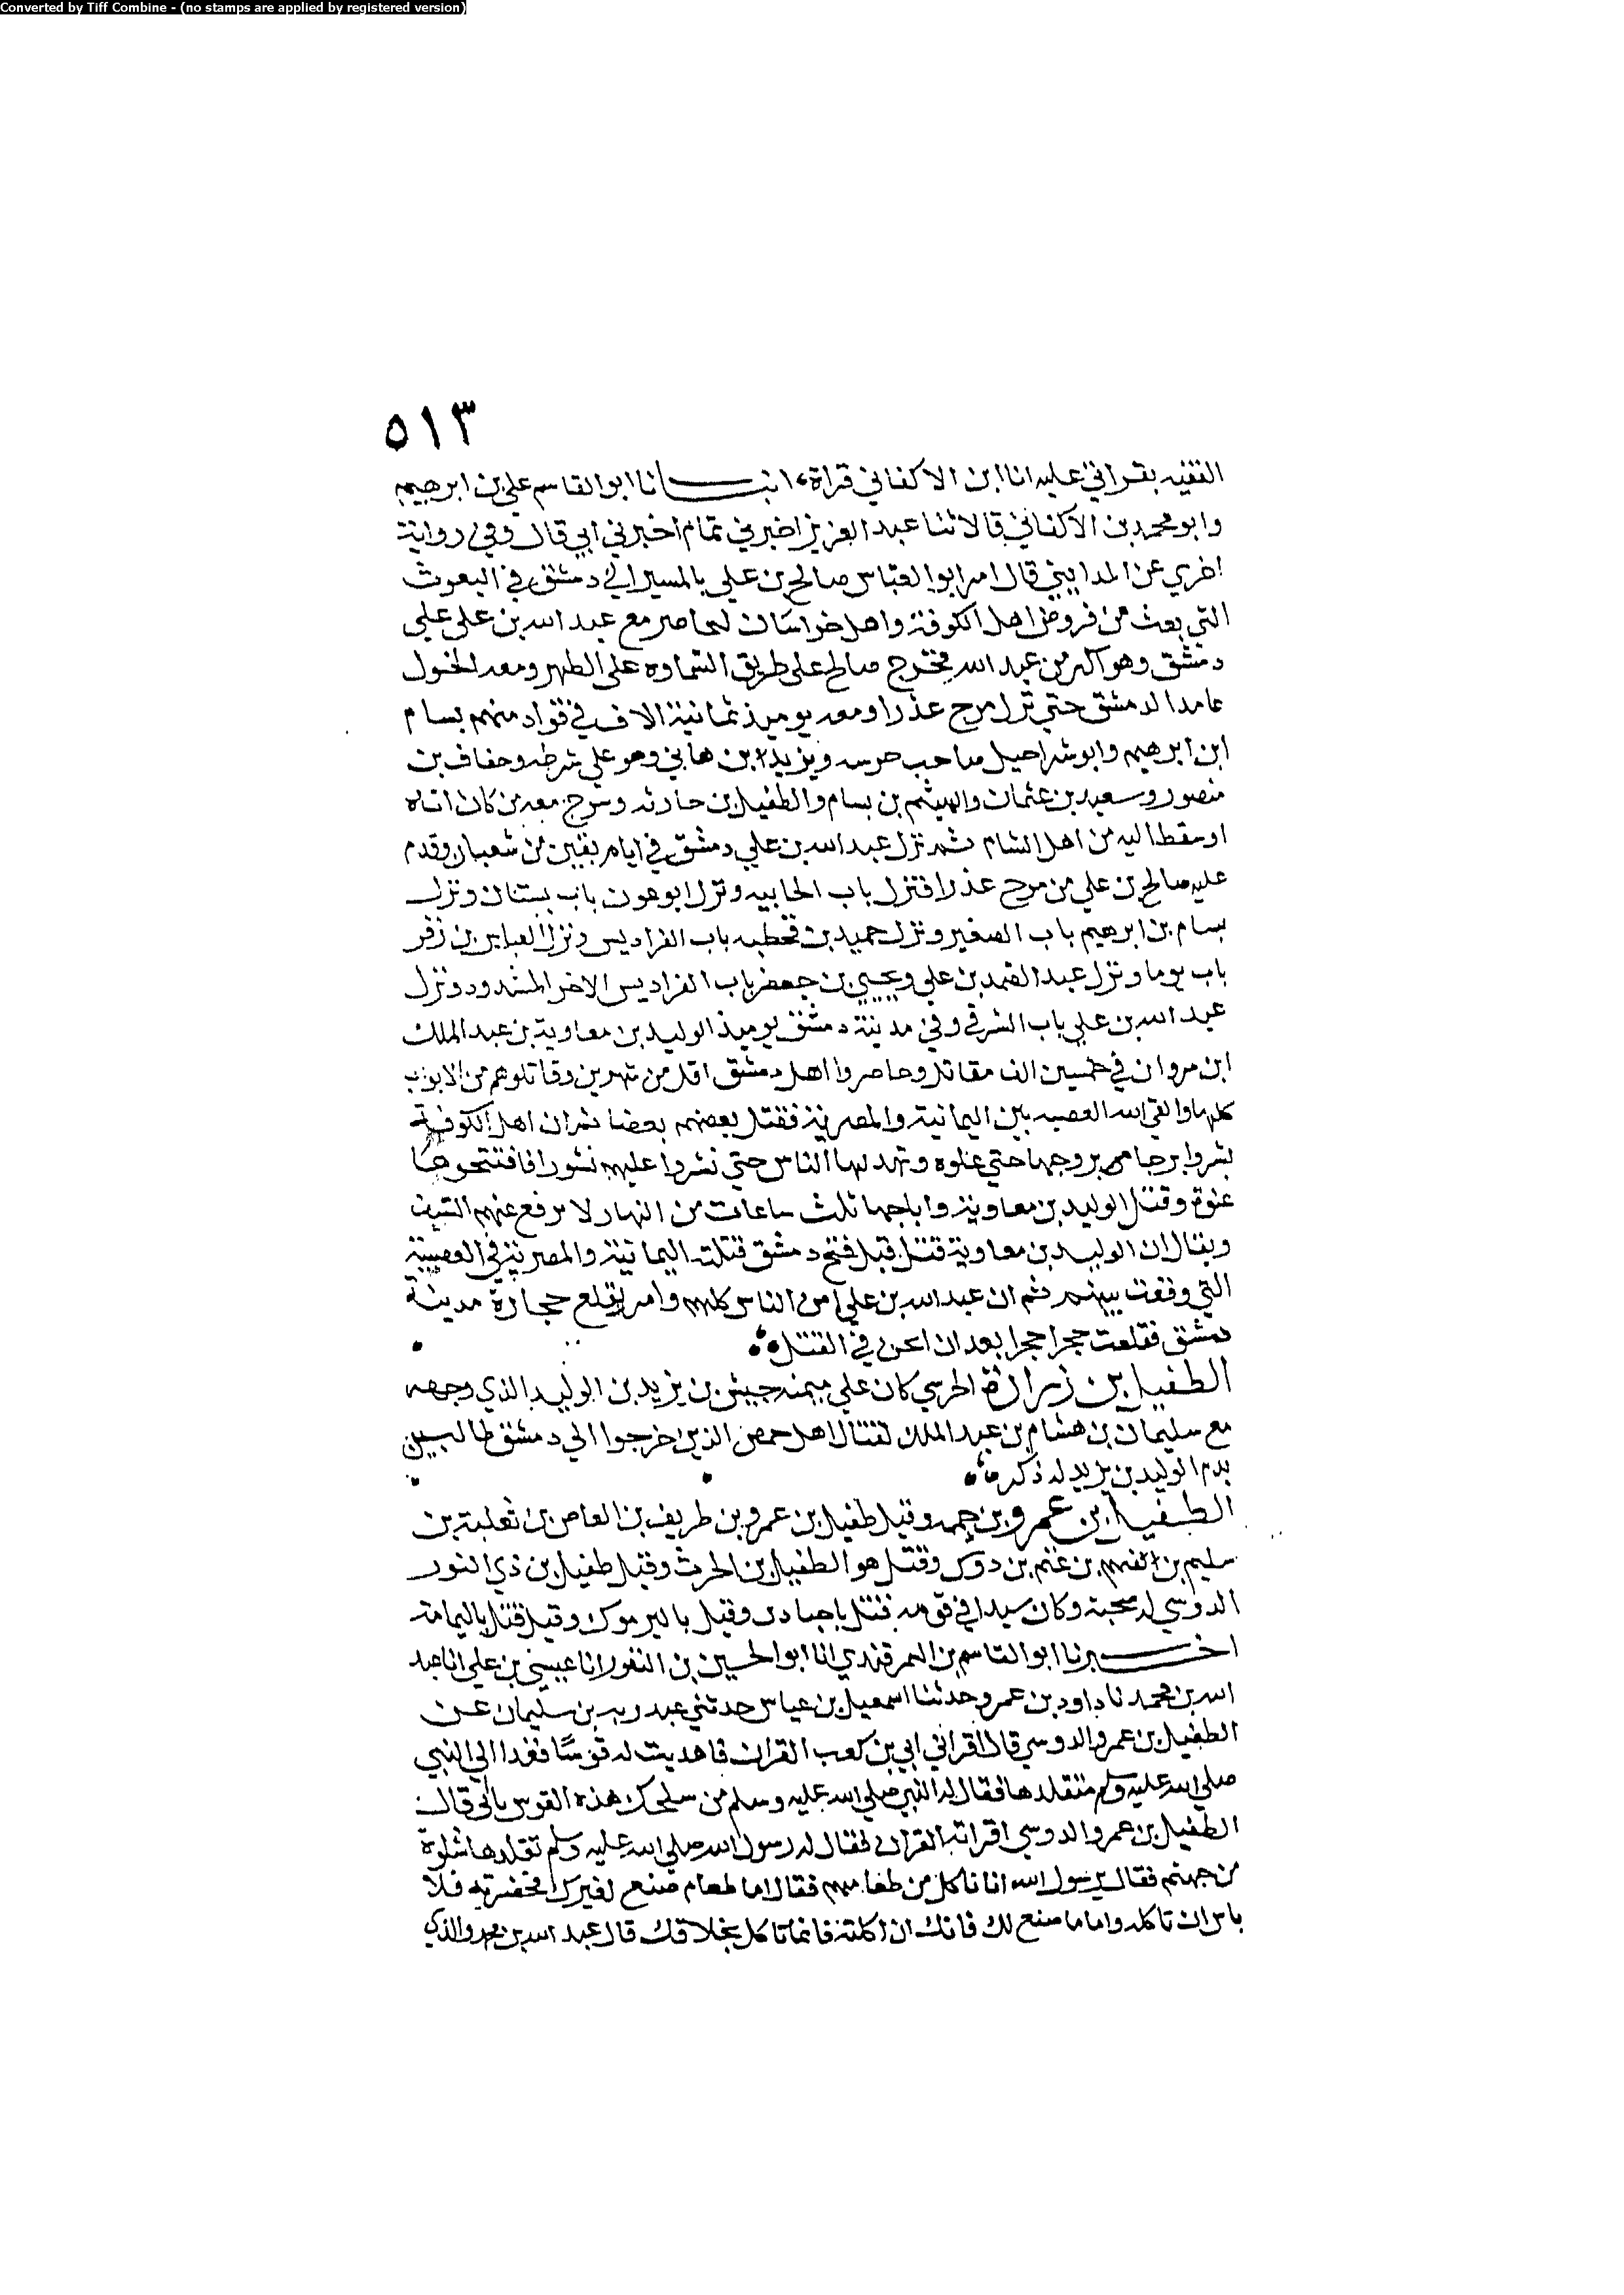 Converted by Tiff Combine - (no stamps are applied by registered version)
٥١٣
الفقيه بقراتي عليه انا ابن الاكفاني قراة انبـانا ابو القاسم علي بن ابرهيم
وابو محمد بن الاكفاني قالا ثنا عبد العزيز اخبرني تمام اخبرني ابي قال وفي رواية
اخري عن المدايني قال امر ابو العباس صالح بن علي بالمسير الي دمشق في البعوث
التي بعث من فروض اهل الكوفة واهل خراسان ليحاصر مع عبد الله بن علي علي
دمشق وهو اكبر من عبد الله فخرج صالح علي طريق السماوه علي الظهر ومعه الخيول
عامدا لدمشق حتي نزل مرج عذرا ومعه يوميذ ثمانية الاف في قواد منهم بسام
ابن ابرهيم وابو شراحيل صاحب حرسه ويزيد بن هاني وهو علي شرطه وخفاف بن
منصور وسعيد بن عثمان والهيثم بن بسام والطفيل بن حارثه وخرج معه من كان اتاه
او سقط اليه من اهل الشام ثم نزل عبد الله بن علي دمشق في ايام بقين من شعبان وقدم
عليه صالح بن علي من مرج عذرا فنزل باب الجابيه ونزل ابو عون باب بستان ونزل
بسام بن ابرهيم باب الصغير ونزل حميد بن قحطبه باب الفراديس ونزل العباس بن زفر
باب توما ونزل عبد الصمد بن علي ويحيي بن جعفر باب الفراديس الاخر المسدود ونزل
عبد الله بن علي باب الشرقي وفي مدينة دمشق يوميذ الوليد بن معاوية بن عبد الملك
ابن مروان في خمسين الف مقاتل وحاصروا اهل دمشق اقل من شهرين وقاتلوهم من الابواب
كلها والقي الله العصبيه بين اليمانية والمضرية فقتل بعضهم بعضا ثم ان اهل الكوفة
برجا من بروجها حتي علوه وتهدلها الناس حتي نشروا عليهم نشورا فافتتحوها
عنوة وقتل الوليد بن معاوية واباحها ثلث ساعات من النهار لا يرفع عنهم السيف
ويقال ان الوليد بن معاوية قتل قبل فتح دمشق قتلته اليمانية والمضرية في العصبية
التي وقعت بينهم ثم ان عبد الله بن علي امن الناس كلهم وامر بقلع حجارة مدينة
دمشق فقلعت حجرا حجرا بعد ان امعن في القتل
الطفيل بن زرارة الحرسي كان علي ميمنه جيش بن يزيد بن الوليد الذي وجهه
مع سليمان بن هشام بن عبد الملك لقتال اهل حمص الذين خرجوا الي دمشق طالبين
بدم الوليد بن يزيد له ذكر
الطفيل بن عمرو بن حممه وقيل طفيل بن عمرو بن طريف بن العاص بن ثعلبة بن
سليم بن الفهم بن غنم بن دوس وقيل هو الطفيل بن الحرث وقيل طفيل بن ذي النور
الدوسي له صحبة وكان سيدا في قومه قتل باجنادين وقيل باليرموك وقيل قتل باليمامة
اخـبرنا ابو القاسم بن السمرقندي انا ابو الحسين بن النقور انا عيسي بن علي انا عبد
الله بن محمد نا داود بن عمرو حدثنا اسمعيل بن عياش حدثني عبد ربه بن سليمان عن
الطفيل بن عمرو الدوسي قال اقراني ابي بن كعب القران فاهديت له قوسا فغدا الي النبي
صلي الله عليه وسلم متقلدها فقال له النبي صلي الله عليه وسلم من سلحك هذه القوس يا ابي قال
الطفيل بن عمرو الدوسي اقراته القران فقال له رسول الله صلي الله عليه وسلم تقلدها شلوة
من جهنم فقال يرسول الله انا ناكل من طعامهم فقال اما طعام صنع لغيرك فحضرته فلا
باس ان تاكله واما ما صنع لك فانك ان اكلته فانما تاكل بخلاقك قال عبد الله بن محمد والذي